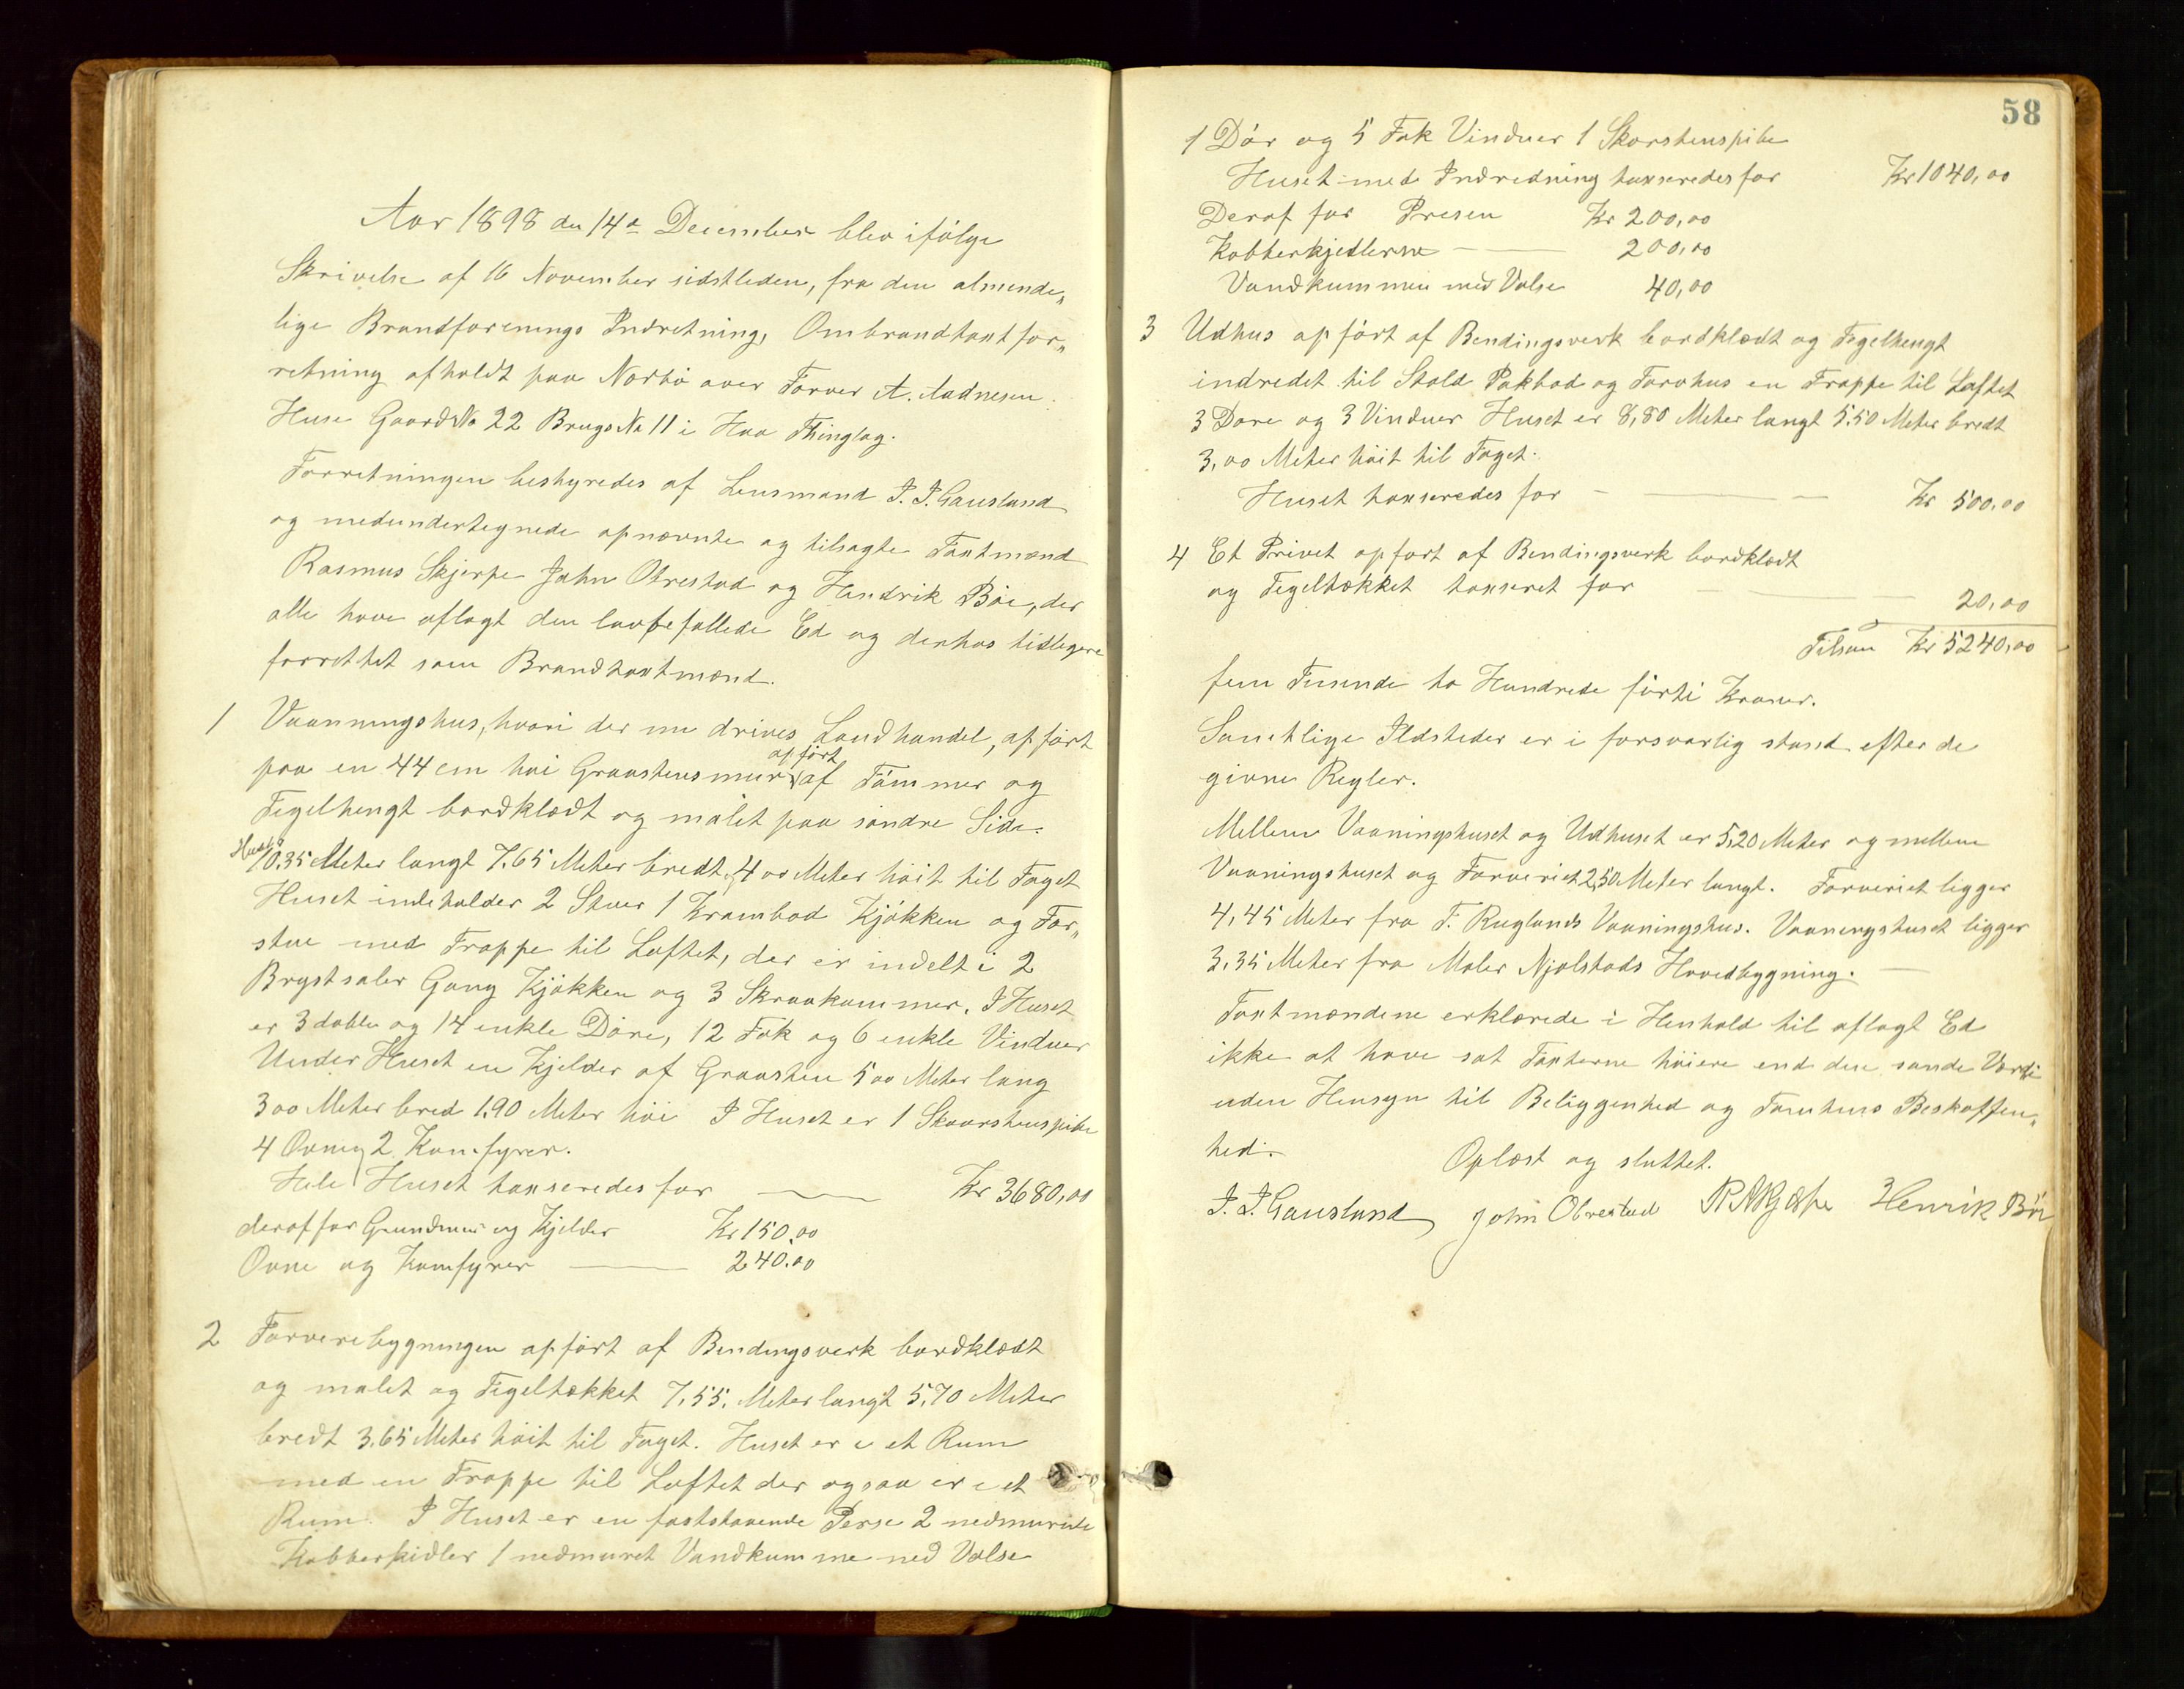 Aar 1898 den 14de December blev ifølge
Skrivelse af 16 November sidstleden, fra den alminde„
lige Brandforenings Indretning, Ombrandtaxtfor„
retning afholdt paa Nærbø over Farver A. Aadnesen
Huse Gaards No 22 Brugs No 11 i Haa Thinglag.
Forretningen bestyredes af Lensmand J. J. Gausland
og medundertegnede opnævnte og tilsagte Taxtmænd
Rasmus Skjerpe John Obrestad og Hendrik Bøe, der
alle have aflagt den lovbefallede Ed og derhos tidligere
forrettet som Brandtaxtmænd.
1 Vaaningshus, hvori der nu drives Landhandel, opført
paa en 44 cm høi Graastensmur opført af Tømmer og
Tegelhengt bordklædt og målet paa søndre Side.
Huset 10.35 Meter langt 7.65 Meter bredt, 4 00 Meter høit til Taget
Huset indeholder 2 Stuer 1 Krambod Kjøkken og For„
stue med Trappe til Loftet, der er indelt i 2
Brystsaler Gang Kjøkken og 3 Skraakammer. I Huset
er 3 doble og 14 enkle Døre, 12 Fak og 6 enkle Vinduer
Under Huset en Kjelder af Graasten 5 00 Meter lang
3 00 Meter bred 1.90 Meter høi I Huset er 1 Skaarstenspibe
4 Ovne og 2 Komfyrer.
Hele Huset taxseredes for Kr 3680,00
deraf for Grundmur og Kjelder Kr 150.00
Ovne og Komfyrer 240.00
2 Farveribygningen opført af Bindingsverk bordklædt
og malet og Tegeltækket 7.55. Meter langt 5.70 Meter
bredt 3.65 Meter høit til Taget. Huset er i et Rum
med en Trappe til Loftet der ogsaa er i et
Rum. I Huset er en faststaaende Perse 2 nedmurede
Kobberkidler 1 nedmuret Vandkumme med Valse
58
1 Dør og 5 Fak Vinduer 1 Skorstenspibe
Huset med Indredning taxseredes for Kr 1040,00
Deraf for Presen Kr 200,00
Kobberkjedlerne 200,00
Vandkummen med Valse 40,00
3 Udhus opført af Bendingsverk bordklædt og Tegelhengt
indredet til Stald Pakbod og Torvhus en Trappe til Loftet
3 Døre og 3 Vinduer Huset er 8,80 Meter langt 5.50 Meter bredt
3,00 Meter høit til Taget.
Huset taxseredes for Kr 500,00
4 Et Privet opført af Bendingsverk bordklædt
og Tegeltækket taxseret for 20,00
Tilsam Kr 5240,00
fem Tusinde to Hundrede førti Kroner.
Samtlige Ildsteder er i forsvarlig stand efter de
givne Regler.
Mellem Vaaningshuset og Udhuset er 5,20 Meter og mellem
Vaaningshuset og Farveriet 2,50 Meter langt. Farveriet ligger
4,45 Meter fra T. Ruglands Vaaningshus. Vaaningshuset ligger
3.35 Meter fra Maler Njølstads Hovedbygning.
Taxtmændene erklærede i Henhold til aflagt Ed
ikke at have sat Taxterne høiere end den sande Værdi
uden Hensyn til Beliggenhed og Tomtens Beskaffen„
hed. Oplæst og sluttet.
J. J. Gausland John Obrestad R R Skjerpe Henrik Bö